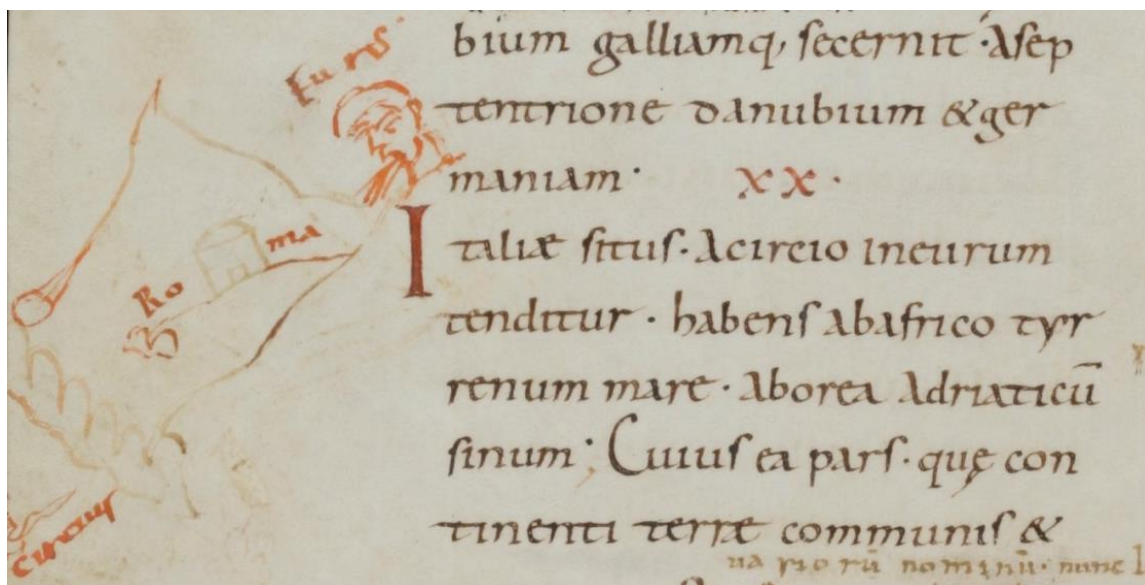 Eurus
bium galliamq; secernit · Asep
tentrione danubium & ger
maniam · xx ·
Ro ma
Italiæ situs · Acircio ineurum
tenditur · habens abafrico tyr
renum mare · aborea Adriaticū
sinum · Cuius ea pars · quę con
tinenti terræ communis &
circius
uariorū nominū · nunc